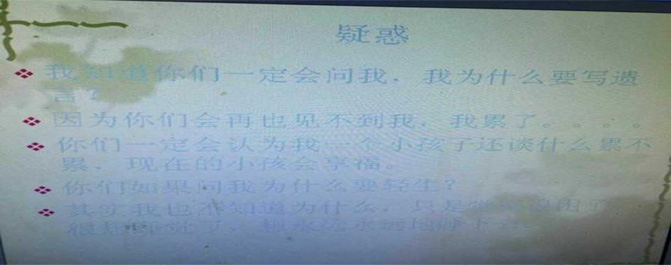 疑惑
我知道你们一定会问我，我为什么要写遗
言？
因为你们会再也见不到我，我累了。。。。
你们一定会认为我一个小孩子还谈什么累不
累，现在的小孩会享福。
你们如果问我为什么要轻生？
其实我也不知道为什么，只是
很想